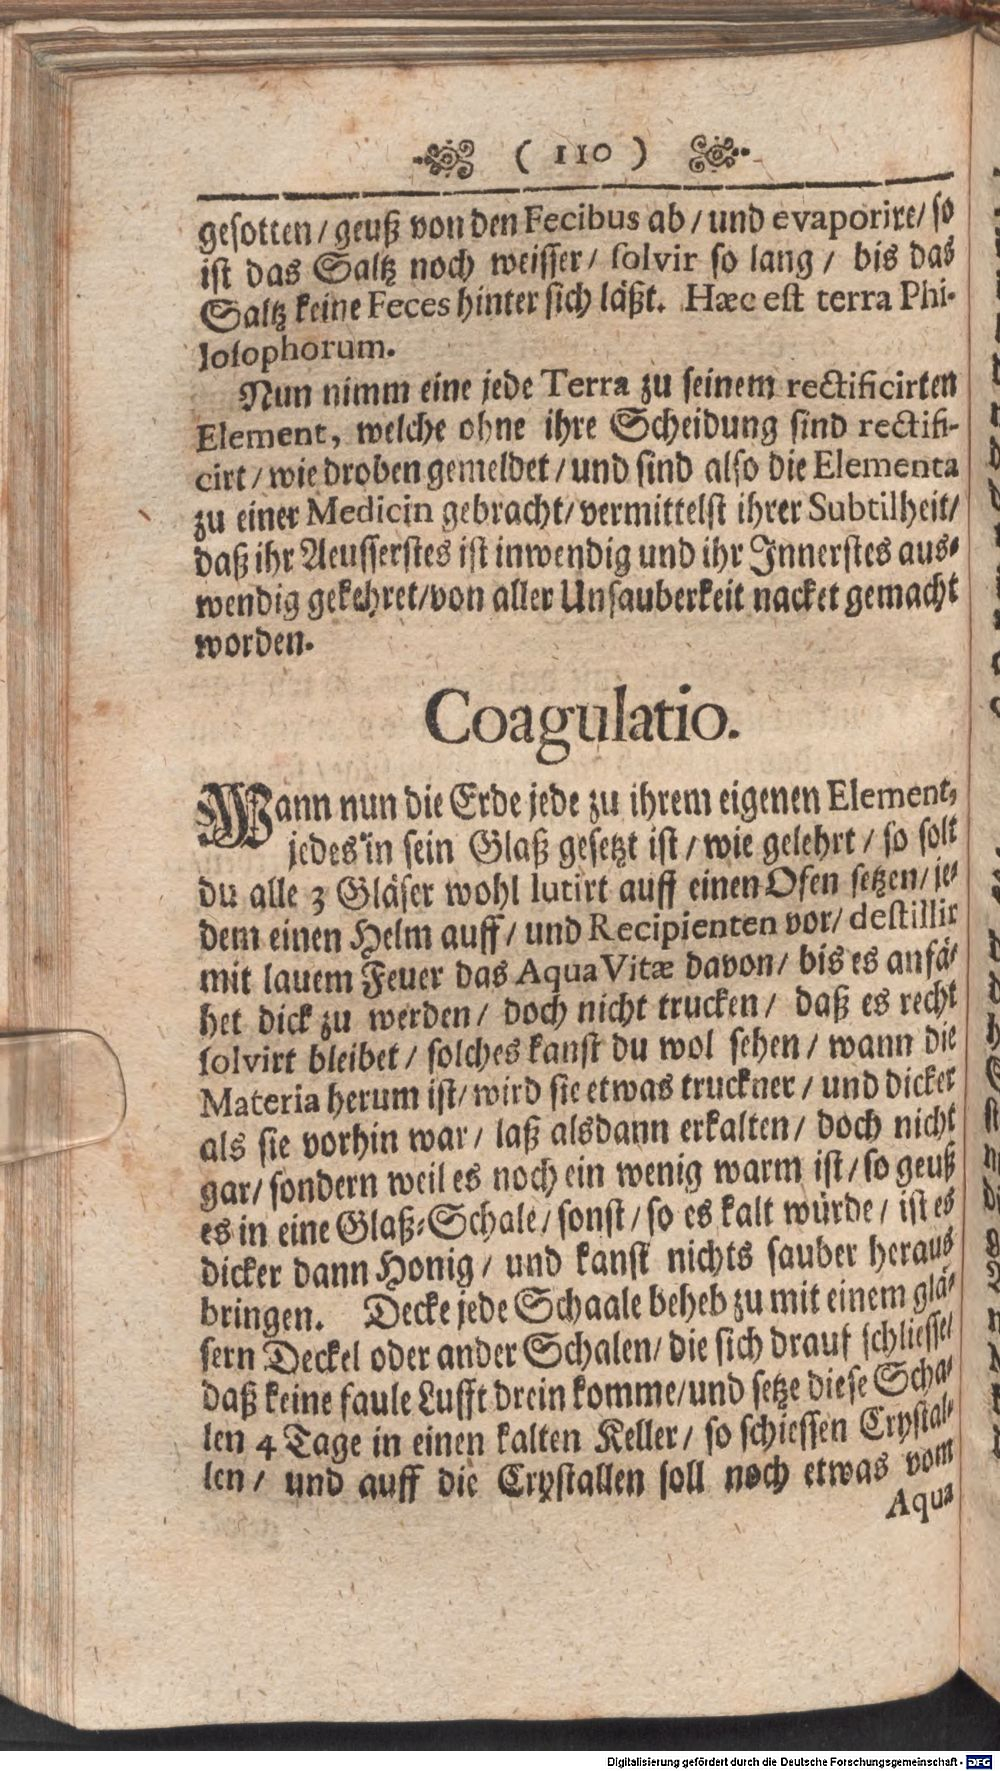 ( 110 )
gesotten / geuß von den Fecibus ab / und evaporire / so
ist das Saltz noch weisser / solvir so lang / bis das
Saltz keine Feces hinter sich läßt. Hæc est terra Phi-
losophorum.
Nun nimm eine jede Terra zu seinem rectificirten
Element, welche ohne ihre Scheidung sind rectifi-
cirt / wie droben gemeldet / und sind also die Elementa
zu einer Medicin gebracht / vermittelst ihrer Subtilheit /
daß ihr Aeusserstes ist inwendig und ihr Innerstes aus-
wendig gekehret / von aller Unsauberkeit nacket gemacht
worden.
Coagulatio.
Wann nun die Erde jede zu ihrem eigenen Element,
jedes in sein Glaß gesetzt ist / wie gelehrt / so solt
du alle 3 Gläser wohl lutirt auff einen Ofen setzen / je-
dem einen Helm auff / und Recipienten vor / destillir
mit lauem Feuer das Aqua Vitæ davon / bis es anfä-
het dick zu werden / doch nicht trucken / daß es recht
solvirt bleibet / solches kanst du wol sehen / wann die
Materia herum ist / wird sie etwas truckner / und dicker
als sie vorhin war / laß alsdann erkalten / doch nicht
gar / sondern weil es noch ein wenig warm ist / so geuß
es in eine Glaß-Schale / sonst / so es kalt würde / ist es
dicker dann Honig / und kanst nichts sauber heraus
bringen. Decke jede Schaale beheb zu mit einem glä-
sern Deckel oder ander Schalen / die sich drauf schliesse /
daß keine faule Lufft drein komme / und setze diese Scha-
len 4 Tage in einen kalten Keller / so schiessen Crystal-
len / und auff die Crystallen soll noch etwas vom
Aqua
Digitalisierung gefördert durch die Deutsche Forschungsgemeinschaft - DFG